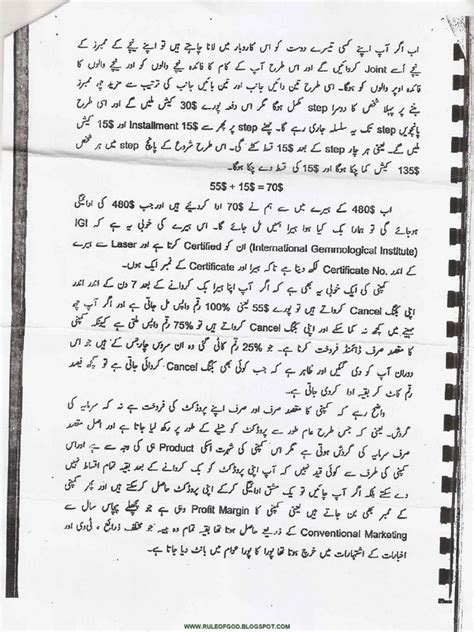 اب اگر آپ اپنے کسی تیسرے دوست کو اس کاروبار میں لانا چاہتے ہیں تو اپنے نیچے کے ممبرز کے
نیچے اُسے Joint کروائیں گے اور اس طرح آپ کے کام کا فائدہ نیچے والوں کو اور نیچے والوں کا
فائدہ آپ کو ہوگا۔ اسی طرح تین دائیں جانب اور تین بائیں جانب کی ترتیب سے مزید چھ ممبرز
بننے پر پہلا شخص کا دوسرا step مکمل ہوگا مگر اس دفعہ پورے 30$ کیش ملیں گے اور اسی طرح
پانچویں step تک یہ سلسلہ جاری رہے گا۔ چھٹے step پر پھر سے 15$ Installment اور 15$ کیش
ملیں گے۔ یعنی ہر چار step کے بعد 15$ قسط کٹے گی۔ اس طرح شروع کے پانچ step میں ہر شخص
135$ کیش کما چکا ہوگا اور 15$ کی قسط دے چکا ہوگا۔
55$ + 15$ = 70$
اب 480$ کے ہیرے میں سے ہم نے 70$ ادا کردیئے ہیں اورجب 480$ کی ادائیگی
ہوجائے گی تو ہمارا بک کیا ہوا ہیرا ہمیں مل جائے گا۔ اس ہیرے کی خوبی یہ ہے کہ IGI
(International Gemmological Institute) ان کو Certified کرتا ہے اور Laser سے ہیرے
کے اندر Certificate No. لکھ دیتا ہے تاکہ ہیرا اور Certificate کے نمبر ایک ہوں۔
کمپنی کی ایک خوبی یہ بھی ہے کہ اگر آپ اپنا ہیرا بک کروانے کے بعد 7 دن کے اندر اندر
اپنی بکنگ Cancel کروانے ہیں تو پورے 55$ یعنی 100% رقم واپس مل جاتی ہے اور اگر آپ چھ
مہینے میں کچھ نہ کما سکے اور اپنی بکنگ Cancel کرواتے ہیں تو 75% رقم واپس ملتی ہے کیونکہ کمپنی
کا مقصد صرف ڈائمنڈ فروخت کرنا ہے۔ جو 25% رقم کاٹی گئی وہ ان سروس چارجس کے ہیں جو اس
دوران آپ کو دی گئیں اور ظاہر ہے کہ جب کوئی بھی بکنگ Cancel کروائی جاتی ہے تو کچھ فیصد
رقم کاٹ کر بقیہ ادا کردی جاتی ہے۔
واضح رہے کہ کمپنی کا مقصد صرف اور صرف اپنے پروڈکٹ کی فروخت ہے نہ کہ سرمایہ کی
گردش۔ یعنی کہ جس طرح عام طور سے پروڈکٹ کو حیلے کے طور پر رکھ لیا جاتا ہے اور اصل مقصد
صرف سرمایہ کی گردش ہوتی ہے مگر اس کمپنی کی شہرت اسکی Product ہی کی وجہ سے ہے اوراس
کمپنی کی طرف سے کوئی قید نہیں کہ آپ صرف پروڈکٹ بک کروانے کے بعد بقیہ تمام اقساط نہیں
دے سکتے بلکہ اگر آپ چاہیں تو یک مشت ادائیگی کرکے اپنی پروڈکٹ حاصل کرسکتے ہیں اور پھر کمپنی
کے ممبر بھی بن جاتے ہیں یعنی کمپنی کا Profit Margin وہی ہے جو پچھلے پچاس سال سے
Conventional Marketing کے ذریعے حاصل ہوتا تھا بقیہ تمام وہ پیسہ جو مختلف ذرائع ، ٹی،وی اور
اخبارات کے اشتہارات میں خرچ ہوتا تھا پورا کا پورا عوام میں بانٹ دیا جاتا ہے۔
WWW.RULEOFGOD.BLOGSPOT.COM